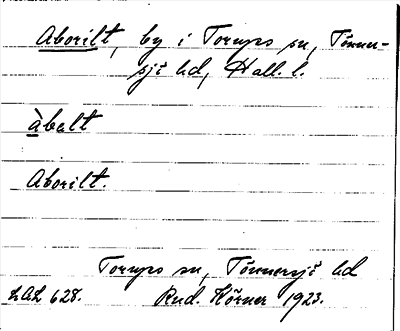 Aborilt, by i Torups sn, Tönner-
sjö hd, Hall. l.
àbalt
Aborilt.
Torups sn, Tönnersjö hd
LAL 628. Rud. Körner 1923.